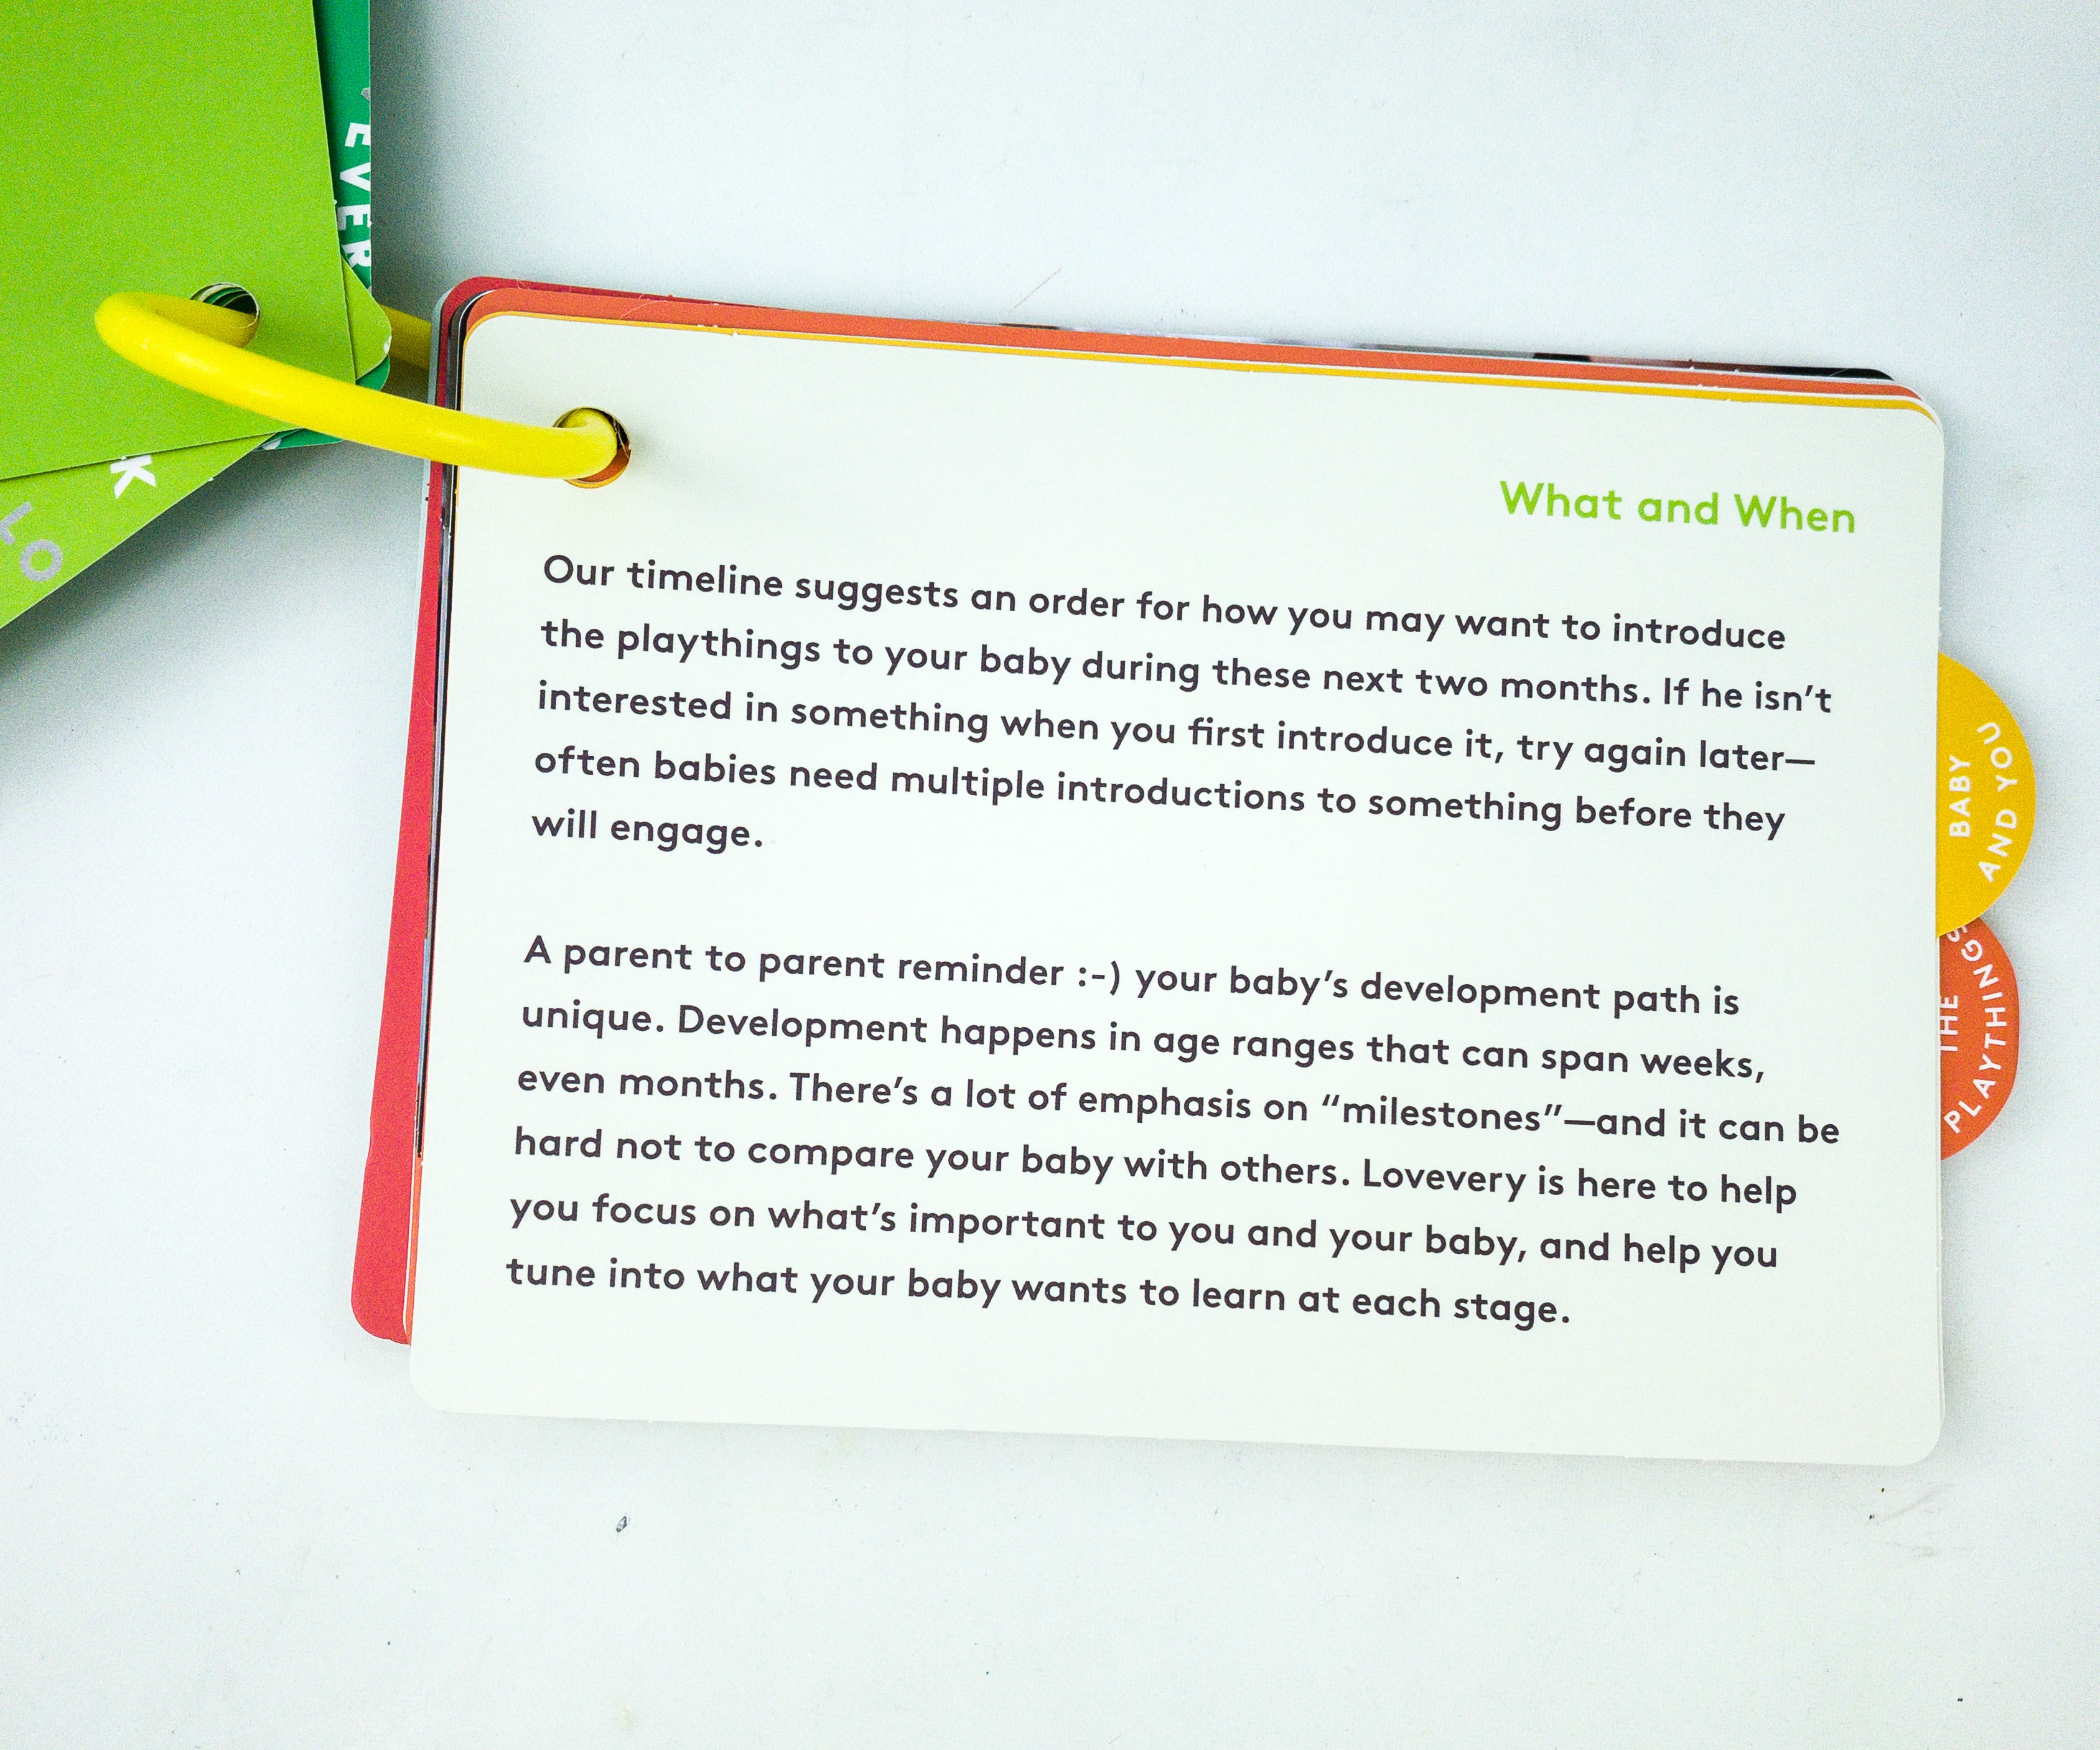 What and When
Our timeline suggests an order for how you may want to introduce
the playthings to your baby during these next two months. If he isn’t
interested in something when you first introduce it, try again later—
often babies need multiple introductions to something before they
will engage.
A parent to parent reminder :-) your baby’s development path is
unique. Development happens in age ranges that can span weeks,
even months. There’s a lot of emphasis on “milestones”—and it can be
hard not to compare your baby with others. Lovevery is here to help
you focus on what’s important to you and your baby, and help you
tune into what your baby wants to learn at each stage.
BABY
AND YOU
THE
PLAYTHINGS
EVER
K
LO